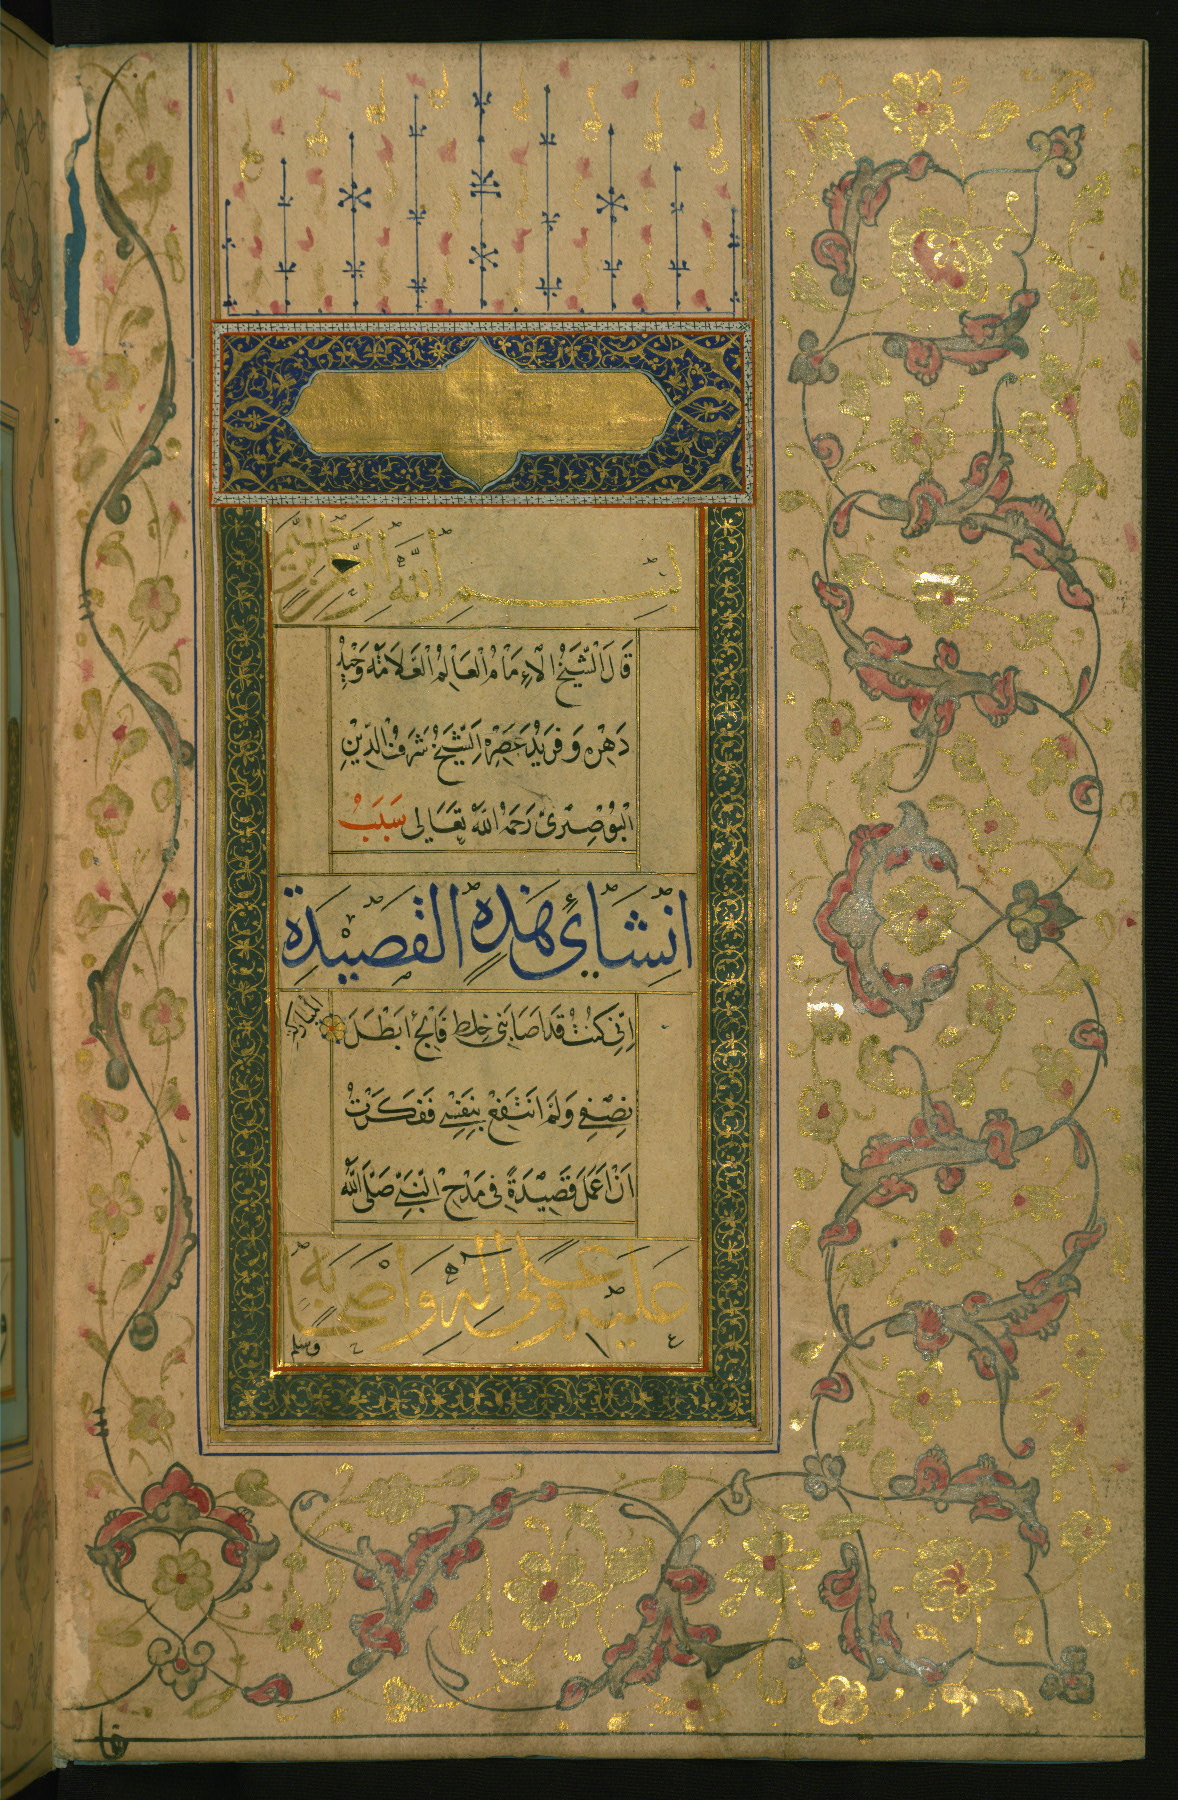 بسم الله الرحمن الرحيم
قَالَ الشَّيْخُ الْاِمَامُ الْعَالِمُ الْعَلَامَّه وَحِيْدِ
دَهْرِه وَفَرِيْدِ عَصْرِهِ اَلشَّيْخُ شَرَفُ الدِّيْنِ
الْبُوْصِيْرِىْ رَحَمَهُ اللهُ تَعَالى سَبَبُ
اِنْشَاىِٔ هَذِهِ القَصِيْدَةِ
المباركة
اِنِّى كُنْتُ قَد اَصَابَنِى خِلط فَالِجٌ اَبْطَلَ
نِصْفِى وَلَمْ اَنْتَفِعْ بِنَفْسِى فَفَكَّرْتُ
اَنْ اَعْمَلَ قَصِيْدَةً فِى مَدْحِ النَّبِيِّ صَلَّى الله
عليه وعلى اله واصحابه
وسلم